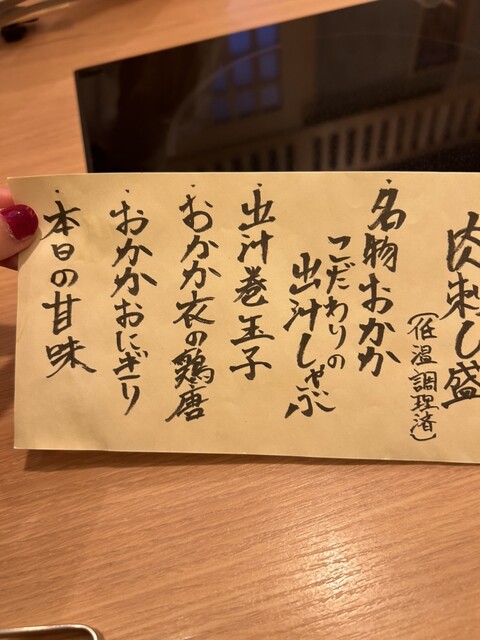 肉刺し盛
(低温調理済)
・名物おかか
こだわりの
出汁しゃぶ
・出汁巻玉子
・おかか衣の鶏唐
・おかかおにぎり
・本日の甘味